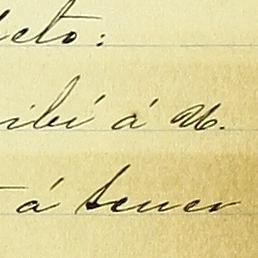 eto:
ibí á U.
á tener